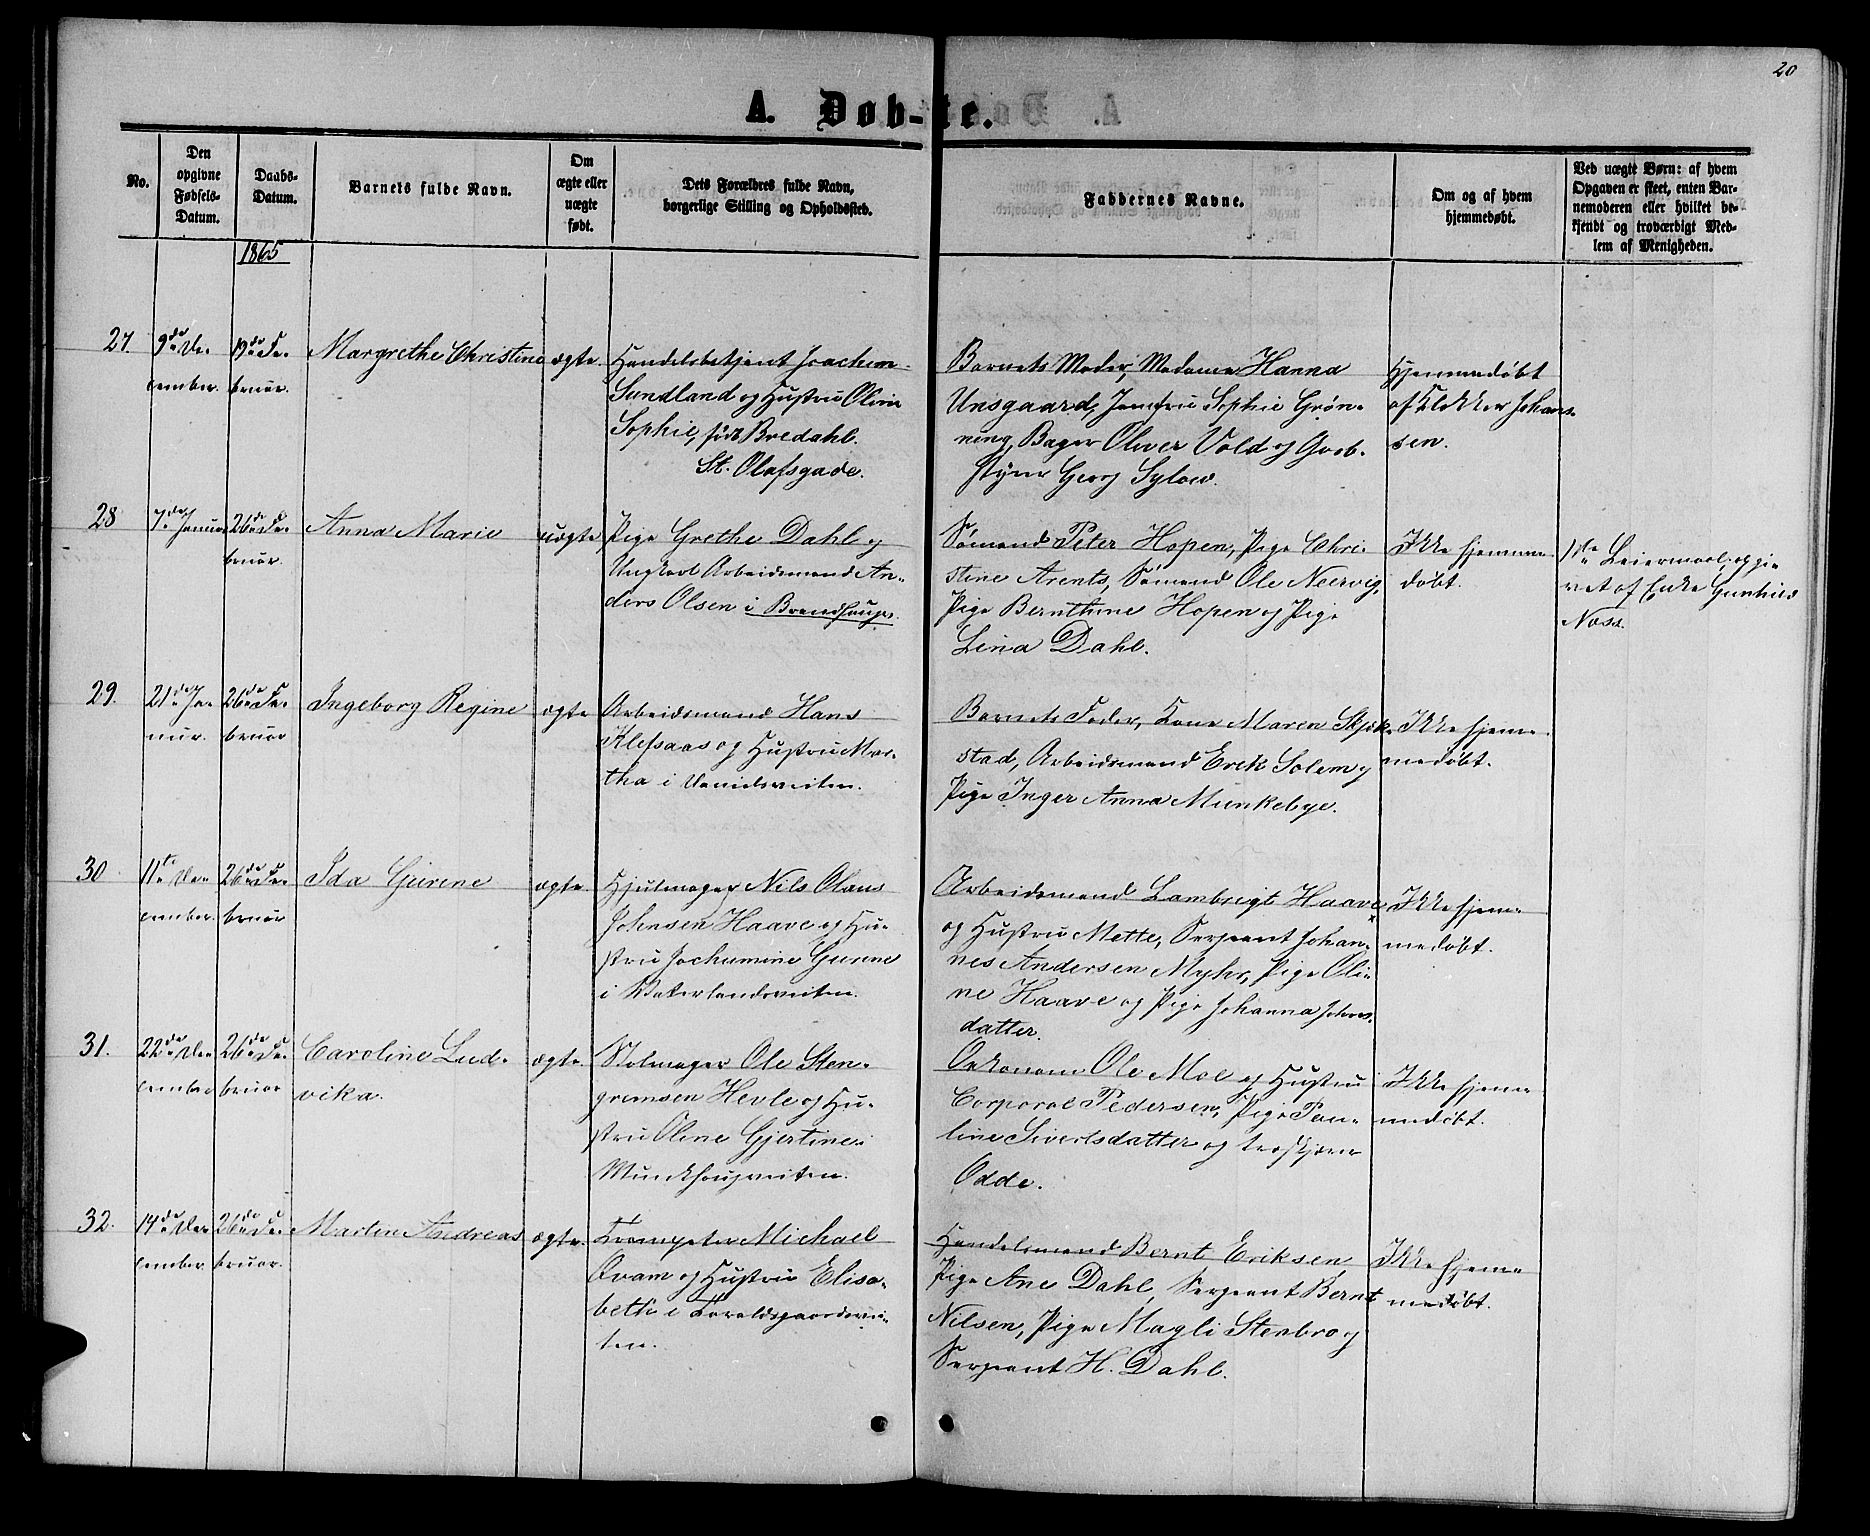 20
A. Døb-te.
No.
Den
opgivne
Fødsels-
Datum.
Daabs-
Datum.
Barnets fulde Navn.
Om
ægte eller
uægte
født.
Dets Forældres fulde Navn,
borgerlige Stilling og Opholdssted.
Faddernes Navne.
Om og af hvem
hjemmedøbt.
Ved uægte Børn: af hvem
Opgaven er skeet, enten Bar-
nemoderen eller hvilket be-
kjendt og troværdigt Med-
lem af Menigheden.
1865
27.
9de De-
cember.
19de Fe-
bruar.
Margrethe Christine
ægte.
Handelsbetjent Joachim
Sundland og Hustru Olivia
Sophie, født Bredahl.
St. Olafsgade.
Barnets Moder, Madame Hanna
Unsgaard, Jomfru Sophie Grøn-
ning, Bager Oliver Vold og
Georg Sylow.
Hjemmedøbt
af Klokker Johan-
sen.
28
7de Januar
26de Fe-
bruar.
Anna Marie
uægte
Pige Grethe Dahl og
Ungkarl Arbeidsmand An-
ders Olsen i
Sømand Peter Hopen, Pige Chri-
stine Arents, Sømand Ole Neervig,
Pige Bernthine Hopen og Pige
Lina Dahl.
Ikke hjemme-
døbt.
1ste Leiermaal, opgi-
vet af Enke Gunhild
Næss.
29.
21de Ja-
nuar.
26de Fe-
bruar
Ingeborg Regine
ægte
Arbeidsmand Hans
Klefsaas og Hustru Mar-
tha i
Barnets Fader, Kone Maren Skjek-
stad, Arbeidsmand Erik Solem og
Pige Inger Anna Munkebye.
Ikke hjem-
medøbt.
30
11te De-
cember.
26de Fe-
bruar
Ida Gurine
ægte.
Hjulmager Nils Olaus
Johnsen Haave og Hu-
stru Jochumine Gurine
i Vaterlandsveiten.
Arbeidsmand Lambrigt Haave
og Hustru Mette, Sergeant Johan-
nes Andersen Myhr, Pige Oli-
ne Haave og Pige Johanna Johns-
datter.
Ikke hjem-
medøbt.
31.
22de De-
cember
26de Fe-
bruar
Caroline Lud-
vika.
ægte.
Stolmager Ole Sten-
gremsen Hevle og Hu-
stru Oline Gjertine i
Munkhaugveiten.
Oekonom Ole Moe og Hustru
Corporal Pedersen, Pige Pau-
line Sivertsdatter og
Odde.
Ikke hjem-
medøbt.
32.
14de De-
cember
26de Fe-
bruar.
Martin Andreas
ægte.
Trompeter Michael
Qvam og Hustru Elisa-
beth i Taraldsgaardsvei-
ten.
Handelsmand Bernt Eriksen,
Pige Ane Dahl, Sergeant Bernt
Nilsen, Pige Magli Stenbro og
Sergeant H. Dahl.
Ikke hjem-
medøbt.